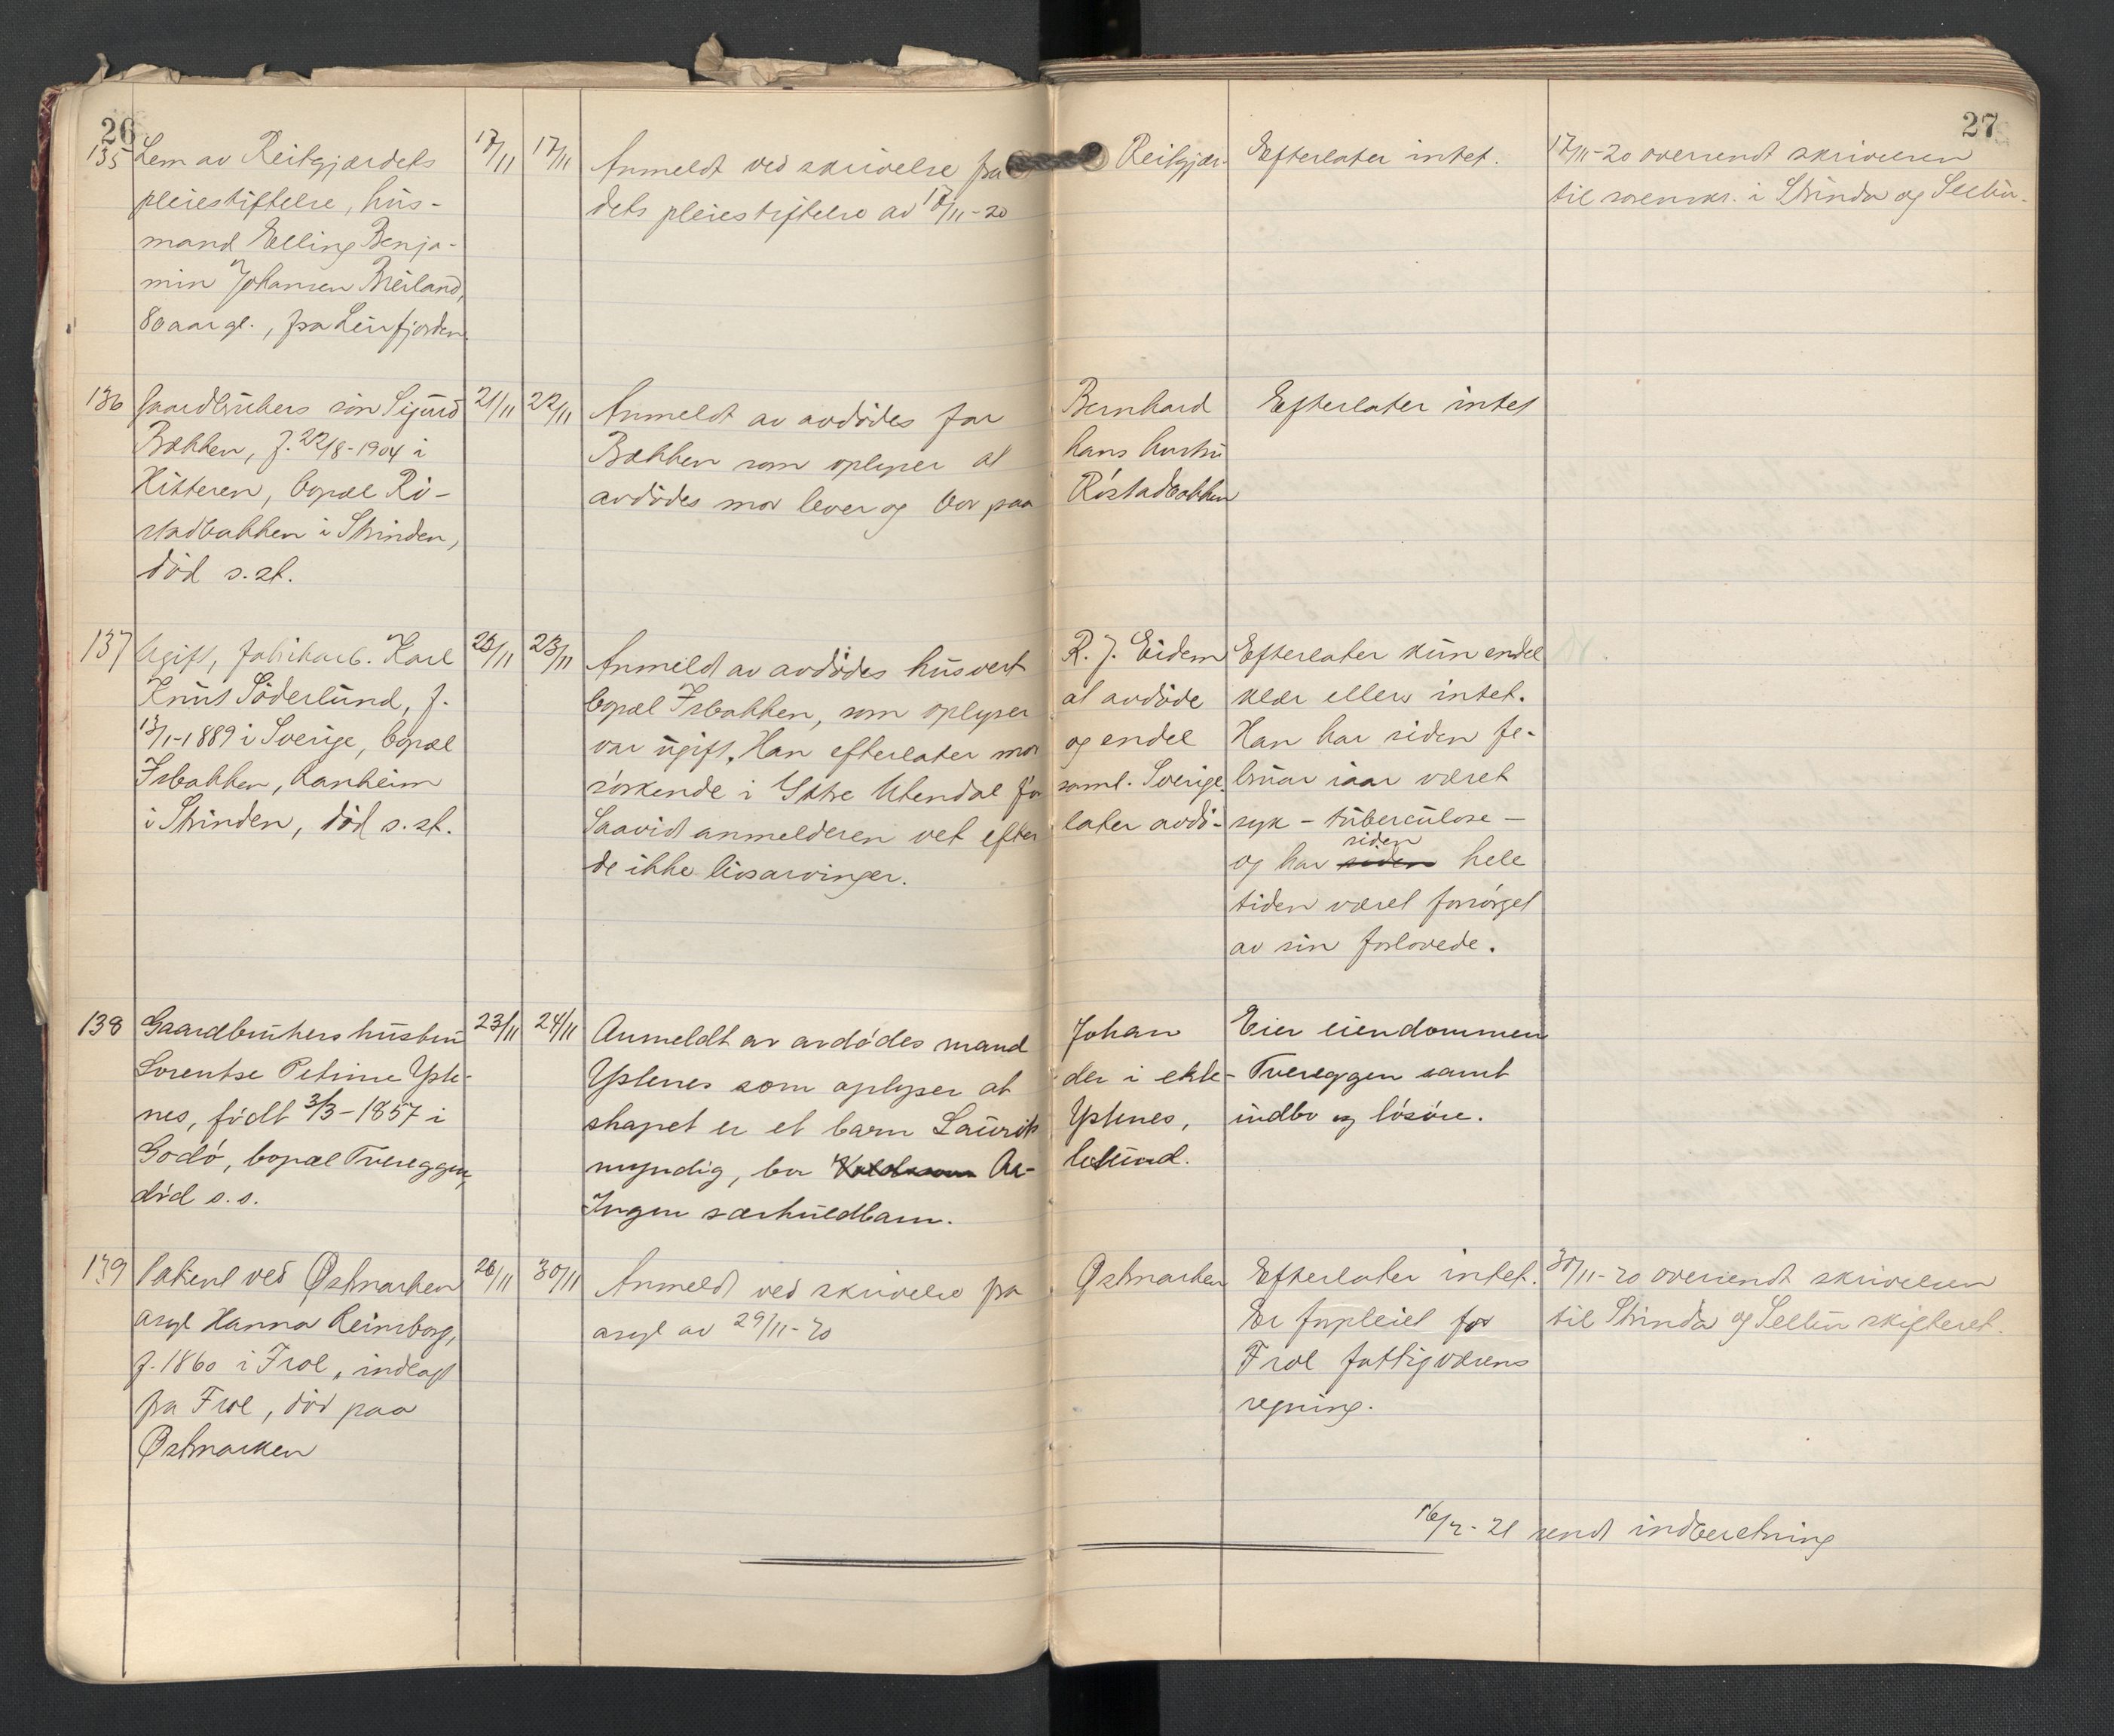 26
27
135
Lem av Reitgjærdets
pleiestiftelse, hus-
mand Elling Benja-
min Johansen Breiland,
80 aar gl., fra Leirfjorden.
17/11
17/11
Anmeldt ved skrivelse fra Reitgjær-
dets pleiestiftelse av 17/11-20
Efterlater intet.
17/11-20 oversendt skrivelsen
til sorenskr. i Strinda og Selbu.
136
Gaardbrukers søn Sigurd
Bækken, f. 22/8-1904 i
Hitteren, bopæl Rø-
stadbakken i Strinden,
død s. st.
21/11
22/11
Anmeldt av avdødes far Bernhard
Bækken som oplyser at hans hustru
avdødes mor lever og bor paa Røstadbakken
Efterlater intet
137
Ugift, fabrikarb. Karl
Knut Söderlund, f.
13/1-1889 i Sverige, bopæl
Isbakken, Ranheim
i Strinden, død s. st.
23/11
Anmeldt av avdødes husvert R. J. Eidem
bopæl Isbakken, som oplyser at avdøde
var ugift. Han efterlater mor og endel
søskende i saml. Sverige.
Saavidt anmelderen vet efterlater avdø-
de ikke livsarvinger.
Efterlater kun endel
klær ellers intet.
Han har siden fe-
bruar iaar været
syk - tuberculose -
siden
og har siden hele
tiden været forsørget
av sin forlovede.
138
Gaardbrukers hustru
Lorentse Petrine Yste-
nes, født 3/3-1857 i
Godø, bopæl Tvereggen,
død s. s.
23/11
24/11
Anmeldt av avdødes mand Johan
Ystenes som oplyser at der i ekte-
skapet er et barn Laurits Ystenes,
myndig, bor Aa-lesund.
Ingen særkuldbarn.
Eier eiendommen
Tvereggen samt
indbo og løsøre.
139
Patient ved Østmarken
asyl Hanna Reinsborg,
f. 1860 i Frol, indlagt
fra Frol, død paa
Østmarken
26/11
30/11
Anmeldt ved skrivelse fra Østmarken
asyl av 29/11-20
Efterlater intet.
Er forpleiet for
Frol fattigvæsens
regning.
30/11-20 oversendt skrivelsen
til Strinda og Selbu skifteret.
16/2-21 sendt indberetning